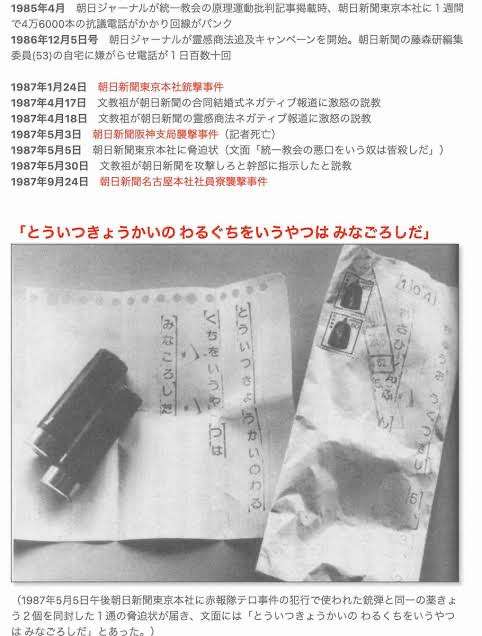 1985年4月　朝日ジャーナルが統一教会の原理運動批判記事掲載時、朝日新聞東京本社に1週間
で4万6000本の抗議電話がかかり回線がパンク
1986年12月5日号　朝日ジャーナルが霊感商法追及キャンペーンを開始。朝日新聞の藤森研編集
委員(53)の自宅に嫌がらせ電話が１日百数十回
1987年1月24日　朝日新聞東京本社銃撃事件
1987年4月17日　文教祖が朝日新聞の合同結婚式ネガティブ報道に激怒の説教
1987年4月18日　文教祖が朝日新聞の霊感商法ネガティブ報道に激怒の説教
1987年5月3日　朝日新聞阪神支局襲撃事件（記者死亡）
1987年5月5日　朝日新聞東京本社に脅迫状（文面「統一教会の悪口をいう奴は皆殺しだ」）
1987年5月30日　文教祖が朝日新聞を攻撃しろと幹部に指示したと説教
1987年9月24日　朝日新聞名古屋本社社員寮襲撃事件
「とういつきょうかいの わるぐちをいうやつは みなごろしだ」
とういつきょうかいのわる
くちをいうやつは
みなころしだ
104
（1987年5月5日午後朝日新聞東京本社に赤報隊テロ事件の犯行で使われた銃弾と同一の薬きょ
う２個を同封した１通の脅迫状が届き、文面には「とういつきょうかいの わるくちをいうやつ
は みなごろしだ」とあった。）